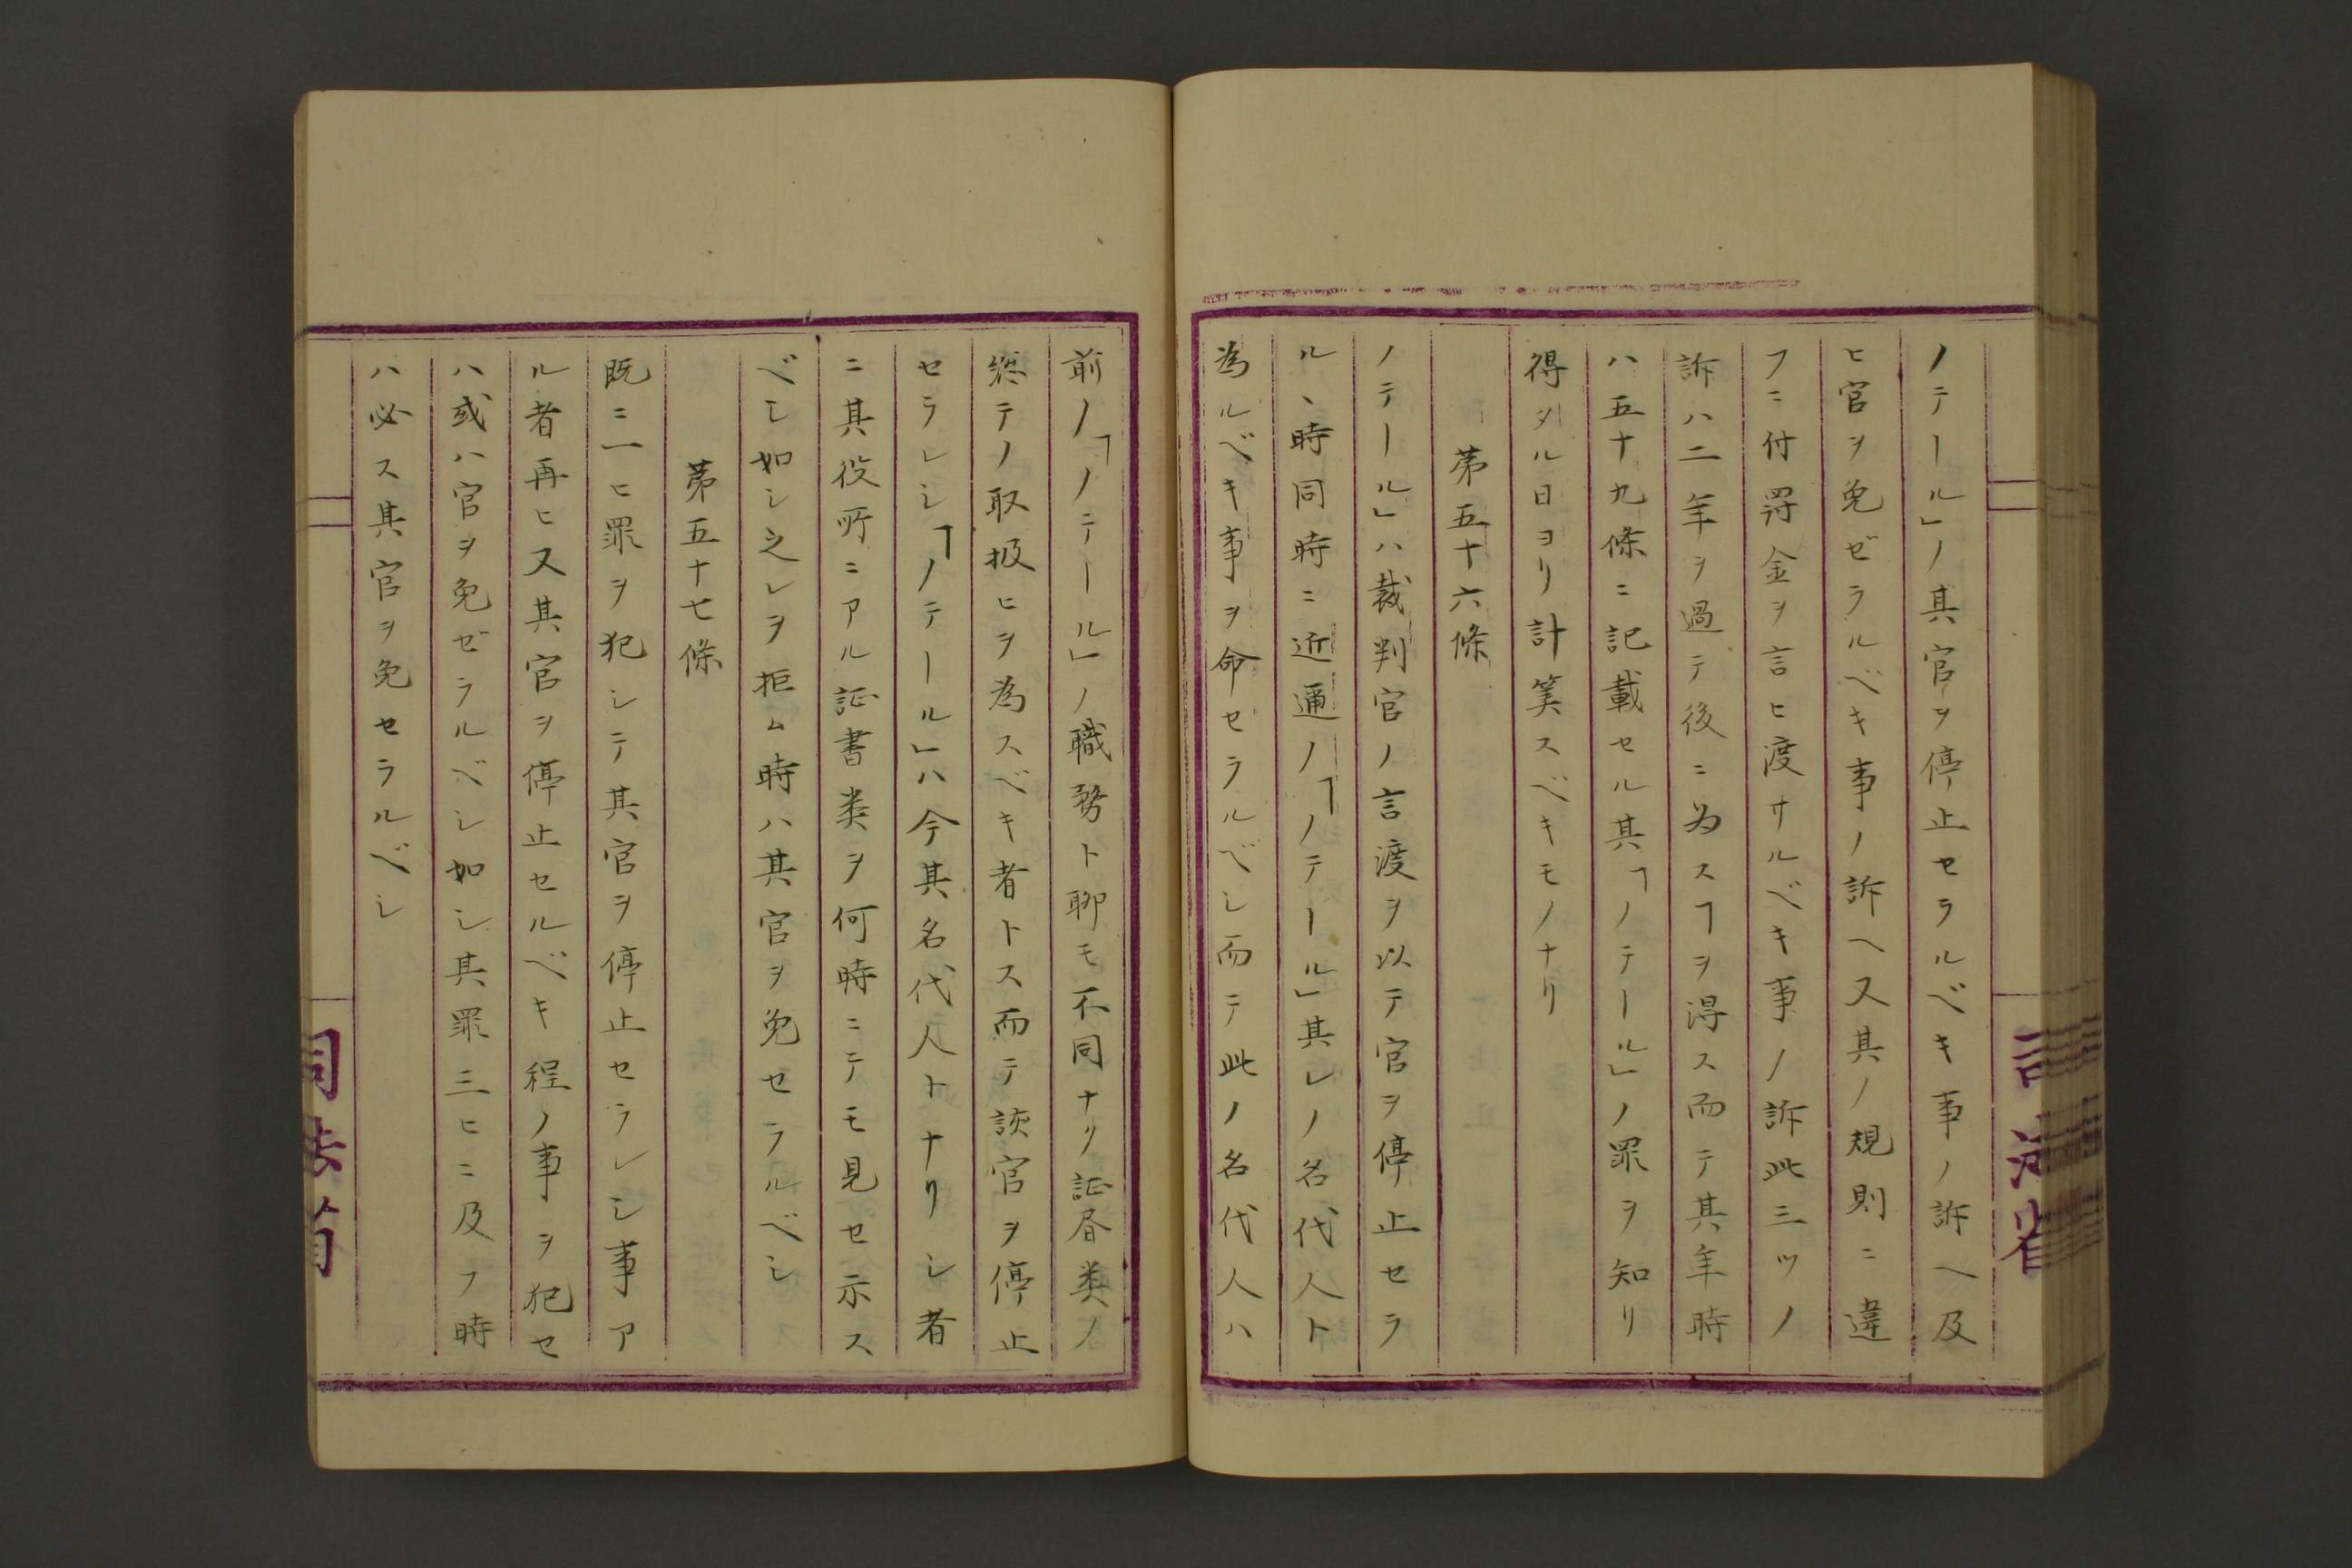 ノテール」ノ其官ヲ停止セラルベキ事ノ訴ヘ及
ヒ官ヲ免ゼラルベキ事ノ訴ヘ又其ノ規則ニ違
フニ付罸金ヲ言ヒ渡サルベキ事ノ訴此三ツノ
訴ハ二年ヲ過テ後ニ為スヿヲ得ス而テ其年時
ハ五十九條ニ記載セル其「ノテール」ノ罪ヲ知リ
得タル日ヨリ計筭スベキモノナリ
第五十六條
ノテール」ハ裁判官ノ言渡ヲ以テ官ヲ停止セラ
ルヽ時同時ニ近邇ノ「ノテール」其レノ名代人ト
為ルベキ事ヲ命セラルベシ而テ此ノ名代人ハ
前ノ「ノテール」ノ職務ト聊モ不同ナク証書類ノ
総テノ取扱ヒヲ為スベキ者トス而テ該官ヲ停止
セラレシ「ノテール」ハ今其名代人トナリシ者
ニ其役所ニアル証書類ヲ何時ニテモ見セ示ス
ベシ如シ之レヲ拒ム時ハ其官ヲ免セラルベシ
第五十七條
既ニ一ヒ罪ヲ犯シテ其官ヲ停止セラレシ事ア
ル者再ヒ又其官ヲ停止セルベキ程ノ事ヲ犯セ
ハ或ハ官ヲ免ゼラルベシ如シ其罪三ヒニ及フ時
ハ必ス其官ヲ免セラルベシ
司法省